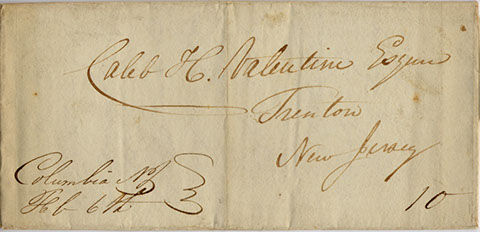 Caleb H. Valentine Esquire
Trenton
New Jersey
Columbia NJ
Feb 6th
10